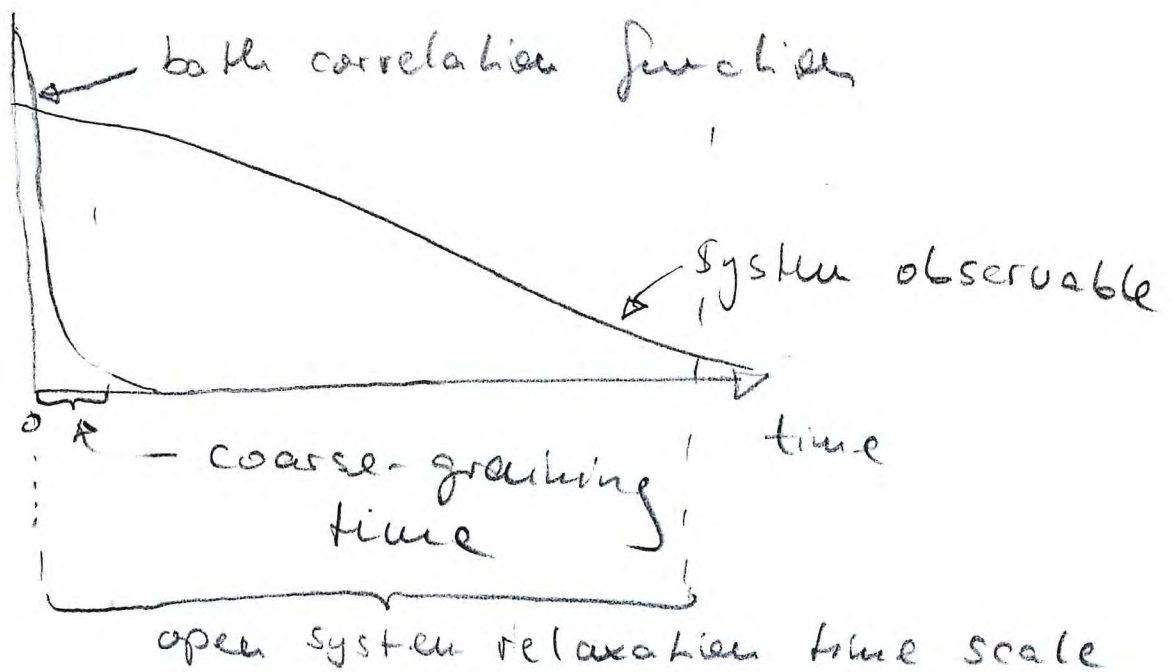 bath correlation function
system observable
0
time
- coarse-graining
time
open system relaxation time scale